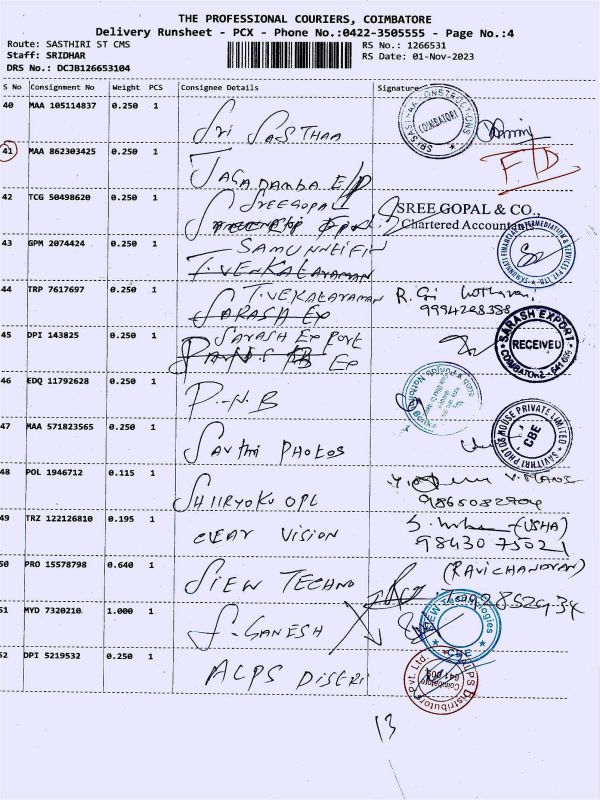 THE PROFESSIONAL COURIERS, COIMBATORE
Delivery Runsheet - PCX - Phone No.:0422-3505555 - Page No.:4
Route: SASTHIRI ST CMS
RS No.: 1266531
Staff: SRIDHAR
RS Date: 01-Nov-2023
DRS No.: DCJB126653104
S No Consignment No Weight PCS Consignee Details Signature
40 MAA 105114837 0.250 1 Sri SASTHAA
COIMBATORE
41 MAA 862303425 0.250 1 JAGADAMBA E/P
F.D
42 TCG 50498620 0.250 1 SREEGOPAL
SREE GOPAL & CO.,
Chartered Accountan
43 GPM 2074424 0.250 1 SAMUNNEIFIN
T.VENKATARAMAN
44 TRP 7617697 0.250 1 T.VEKATARAMAN R. Gi
9994208388
SARASH EX
45 DPI 143825 0.250 1 SARASH EXPORT
SARASH EXPORT
RECEIVED
COIMBATORE-2 - 641
46 EDQ 11792628 0.250 1 P.N.B
47 MAA 571823565 0.250 1 SAVTHRI PHOTOS
SAVITHRI PHOTO HOUSE PRIVATE LIMITED
CBE
48 POL 1946712 0.115 1 SHIIRYOKU OPL
V.MANI
9865082704
49 TRZ 122126810 0.195 1 CLEAR VISION
(USHA)
98430 75021
50 PRO 15578798 0.640 1 SIEW TECHNO
(RAVICHANDRAN)
51 MYD 7320210 1.000 1 S.GANESH
CBE
52 DPI 5219532 0.250 1 ALPS DISTRI
ALPS Distributors Pvt. Ltd.
Coimbatore
13